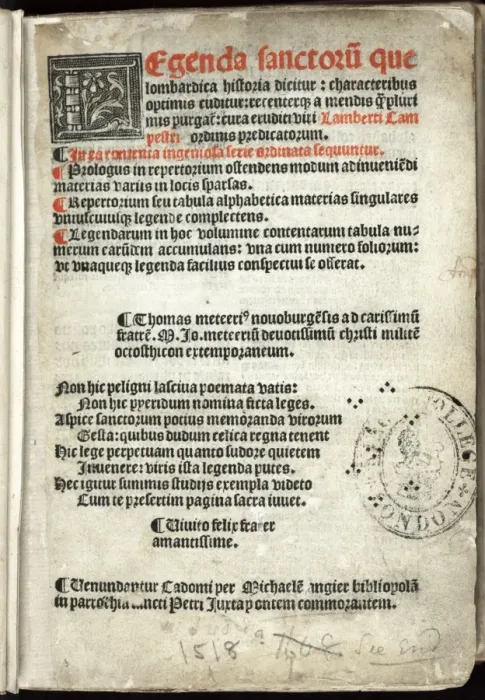 LEgenda sanctorū que
lombardica historia dicitur : characteribus
optimis cuditur: recenterqꝫ a mendis q̄ pluri
mis purgat᷑: cura eruditi viri Lamberti Cam
pestri ordinis predicatorum.
¶ In ea contenta ingeniosa serie ordinata sequuntur.
¶ Prologus in repertorium ostendens modum adinueniēdi
materias variis in locis sparsas.
¶ Repertorium seu tabula alphabetica materias singulares
vniuscuiusqꝫ legende complectens.
¶ Legendarum in hoc volumine contentarum tabula nu-
merum earūdem accumulans: vna cum numero foliorum:
vt vnaqueqꝫ legenda facilius conspectui se offerat.
¶ Thomas meteeriꝰ nouoburgēsis ad carissimū
fratrē. M. Jo. meteeriū deuotissimū christi militē
octosthicon extemporaneum.
Non hic peligni lasciua poemata vatis:
Non hic pyeridum nomina ficta leges.
Aspice sanctorum potius memoranda virorum
Gesta: quibus dudum celica regna tenent
Hic lege perpetuam quanto sudore quietem
Inuenere: viris ista legenda putes.
Hec igitur summis studijs exempla videto
Cum te presertim pagina sacra iuuet.
¶ Viuito felix frater
amantissime.
¶ Uenundantur Cadomi per Michaelē angier bibliopolā
in parrochia sancti Petri Juxta pontem commorantem.
COLLEGE
LONDON
1518 See End